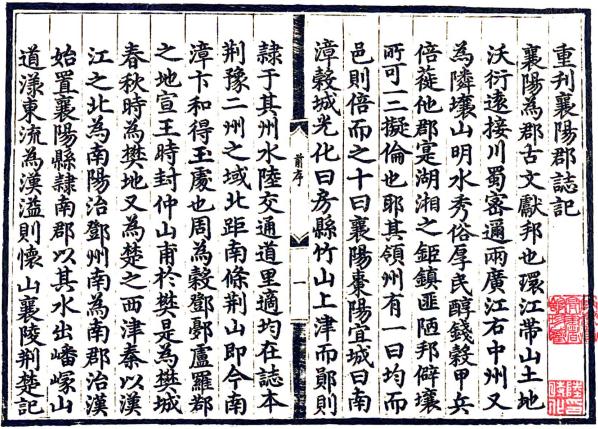 重刊襄陽郡誌記
襄陽為郡古文獻邦也環江帶山土地
沃衍遠接川蜀密邇兩廣江右中州又
為隣壤山明水秀俗厚民醇錢穀甲兵
倍蓰他郡寔湖湘之鉅鎮匪陋邦僻壤
所可一二擬倫也耶其領州有一曰均而
邑則倍而之十曰襄陽棗陽宜城曰南
漳穀城光化曰房縣竹山上津而鄖則
前序
一
隷于其州水陸交通道里適均在誌本
荆豫二州之域北距南條荆山即今南
漳卞和得玉處也周為穀鄧鄾盧羅鄀
之地宣王時封仲山甫於樊是為樊城
春秋時為樊地又為楚之西津秦以漢
江之北為南陽治鄧州南為南郡治漢
始置襄陽縣隷南郡以其水出嶓冡山
道漾東流為漢溢則懷山襄陵荆楚記